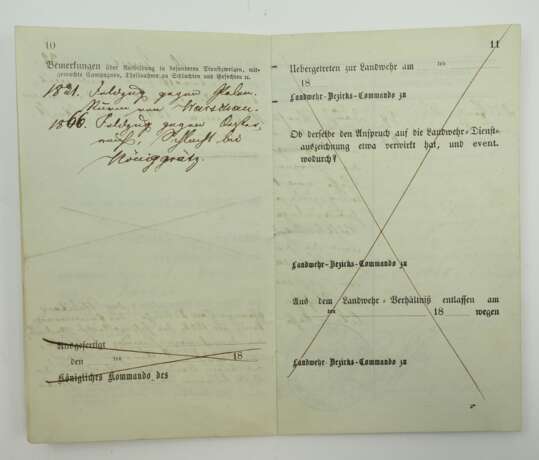 10
Bemerkungen über Ausbildung in besonderen Dienstzweigen, mit-
gemachte Campagnen, Theilnahme an Schlachten und Gefechten ꝛc.
1831. Feldzug gegen Polen.
Sturm von Warschau.
1866. Feldzug gegen Oester,
reich, Schlacht bei
Königgrätz.
Ausgefertigt
den ten 18
Königliches Kommando des
11
Uebergetreten zur Landwehr am ten
18
Landwehr-Bezirks-Commando zu
Ob derselbe den Anspruch auf die Landwehr-Dienst-
auszeichnung etwa verwirkt hat, und event.
wodurch?
Landwehr-Bezirks-Commando zu
Aus dem Landwehr-Verhältniß entlassen am
ten 18 wegen
Landwehr-Bezirks-Commando zu